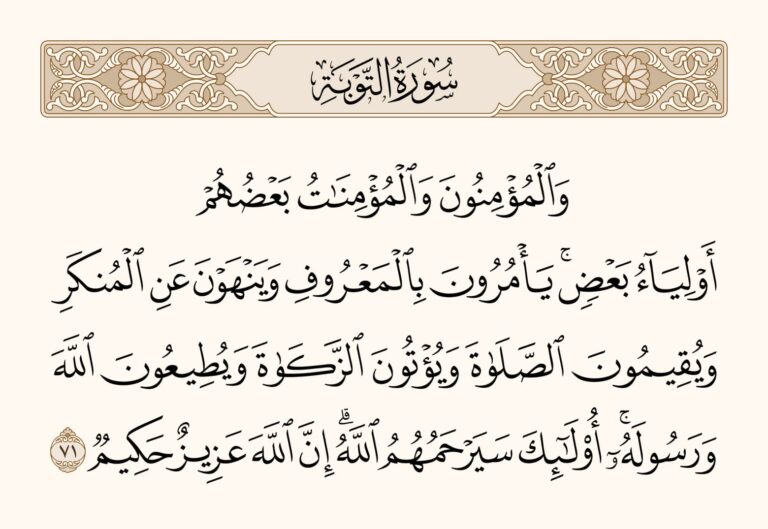 سُورَةُ التَّوْبَةِ
وَٱلْمُؤْمِنُونَ وَٱلْمُؤْمِنَٰتُ بَعْضُهُمْ
أَوْلِيَآءُ بَعْضٍۢ ۚ يَأْمُرُونَ بِٱلْمَعْرُوفِ وَيَنْهَوْنَ عَنِ ٱلْمُنكَرِ
وَيُقِيمُونَ ٱلصَّلَوٰةَ وَيُؤْتُونَ ٱلزَّكَوٰةَ وَيُطِيعُونَ ٱللَّهَ
وَرَسُولَهُۥٓ ۚ أُو۟لَٰٓئِكَ سَيَرْحَمُهُمُ ٱللَّهُ ۗ إِنَّ ٱللَّهَ عَزِيزٌ حَكِيمٌۭ ٧١